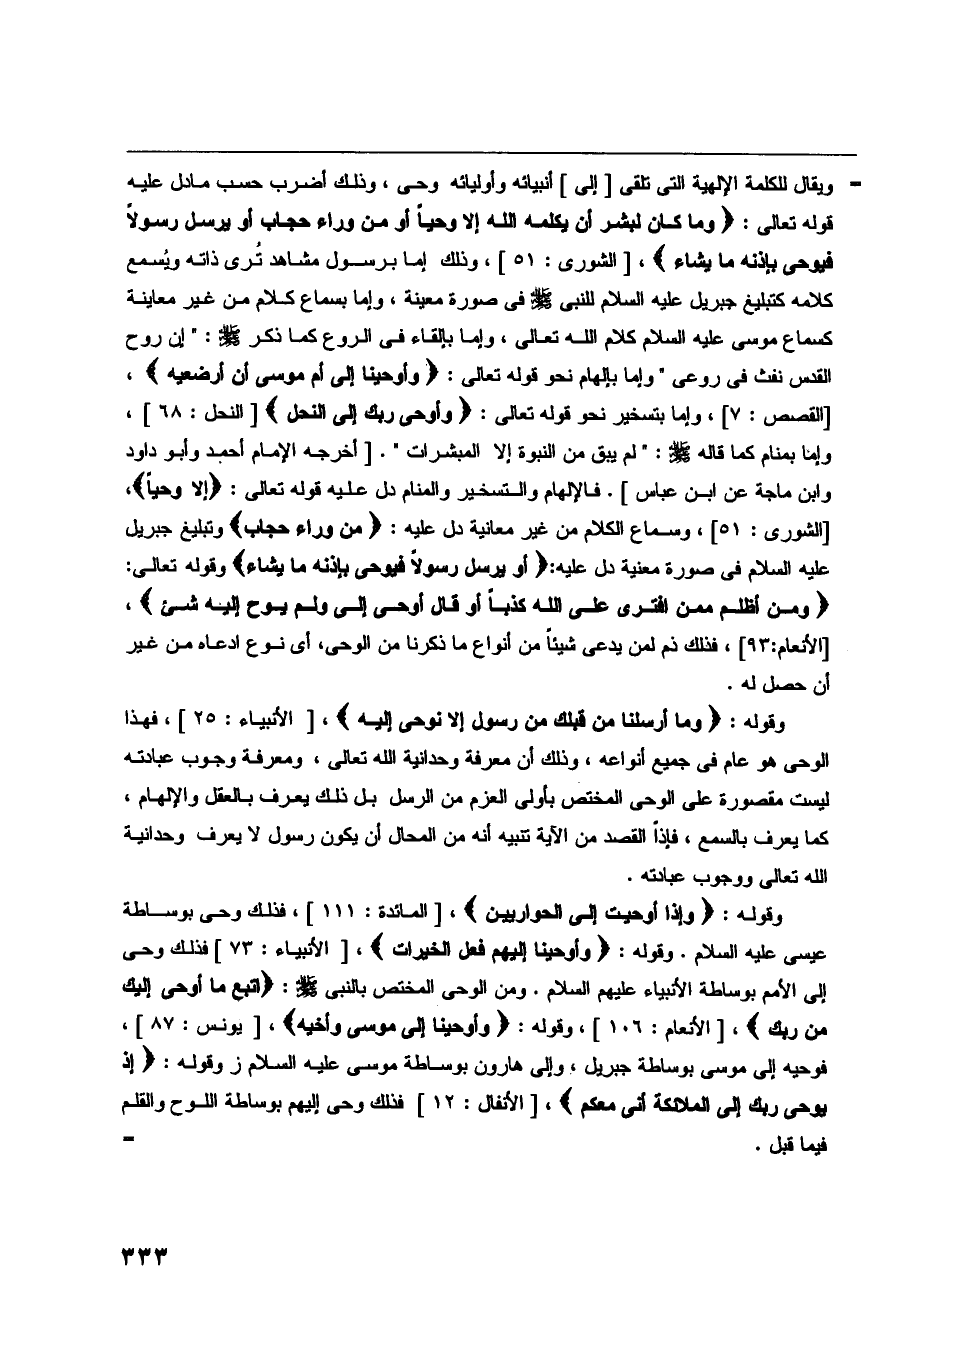 - ويقال للكلمة الإلهية التى تلقى [ إلى ] أنبيائه وأوليائه وحى ، وذلك أضرب حسب مادل عليه
قوله تعالى : ﴿ وما كان لبشر أن يكلمه الله إلا وحياً أو من وراء حجاب أو يرسل رسولاً
فيوحى بإذنه ما يشاء ﴾ ، [ الشورى : ٥١ ] ، وذلك إما برسول مشاهد تُرى ذاته ويُسمع
كلامه كتبليغ جبريل عليه السلام للنبى ﷺ فى صورة معينة ، وإما بسماع كلام من غير معاينة
كسماع موسى عليه السلام كلام الله تعالى ، وإما بإلقاء فى الروع كما ذكر ﷺ : " إن روح
القدس نفث فى روعى " وإما بإلهام نحو قوله تعالى : ﴿ وأوحينا إلى أم موسى أن أرضعيه ﴾ ،
[القصص : ٧] ، وإما بتسخير نحو قوله تعالى : ﴿ وأوحى ربك إلى النحل ﴾ [ النحل : ٦٨ ] ،
وإما بمنام كما قاله ﷺ : " لم يبق من النبوة إلا المبشرات " . [ أخرجه الإمام أحمد وأبو داود
وابن ماجة عن ابن عباس ] . فالإلهام والتسخير والمنام دل عليه قوله تعالى : ﴿إلا وحياً﴾،
[الشورى : ٥١] ، وسماع الكلام من غير معانية دل عليه : ﴿ من وراء حجاب﴾ وتبليغ جبريل
عليه السلام فى صورة معنية دل عليه:﴿ أو يرسل رسولاً فيوحى بإذنه ما يشاء﴾ وقوله تعالى:
﴿ ومن أظلم ممن افترى على الله كذباً أو قال أوحى إلى ولم يوح إليه شئ ﴾ ،
[الأنعام:٩٣] ، فذلك ذم لمن يدعى شيئاً من أنواع ما ذكرنا من الوحى، أى نوع ادعاه من غير
أن حصل له .
وقوله : ﴿ وما أرسلنا من قبلك من رسول إلا نوحى إليه ﴾ ، [ الأنبياء : ٢٥ ] ، فهذا
الوحى هو عام فى جميع أنواعه ، وذلك أن معرفة وحدانية الله تعالى ، ومعرفة وجوب عبادته
ليست مقصورة على الوحى المختص بأولى العزم من الرسل بل ذلك يعرف بالعقل والإلهام ،
كما يعرف بالسمع ، فإذاً القصد من الآية تنبيه أنه من المحال أن يكون رسول لا يعرف وحدانية
الله تعالى ووجوب عبادته .
وقوله : ﴿ وإذا أوحيت إلى الحواريين ﴾ ، [ المائدة : ١١١ ] ، فذلك وحى بوساطة
عيسى عليه السلام . وقوله : ﴿ وأوحينا إليهم فعل الخيرات ﴾ ، [ الأنبياء : ٧٣ ] فذلك وحى
إلى الأمم بوساطة الأنبياء عليهم السلام . ومن الوحى المختص بالنبى ﷺ : ﴿اتبع ما أوحى إليك
من ربك ﴾ ، [ الأنعام : ١٠٦ ] ، وقوله : ﴿ وأوحينا إلى موسى وأخيه﴾ ، [ يونس : ٨٧ ] ،
فوحيه إلى موسى بوساطة جبريل ، وإلى هارون بوساطة موسى عليه السلام ز وقوله : ﴿ إذ
يوحى ربك إلى الملائكة أنى معكم ﴾ ، [ الأنفال : ١٢ ] فذلك وحى إليهم بوساطة اللوح والقلم
فيما قبل . -
٣٣٣